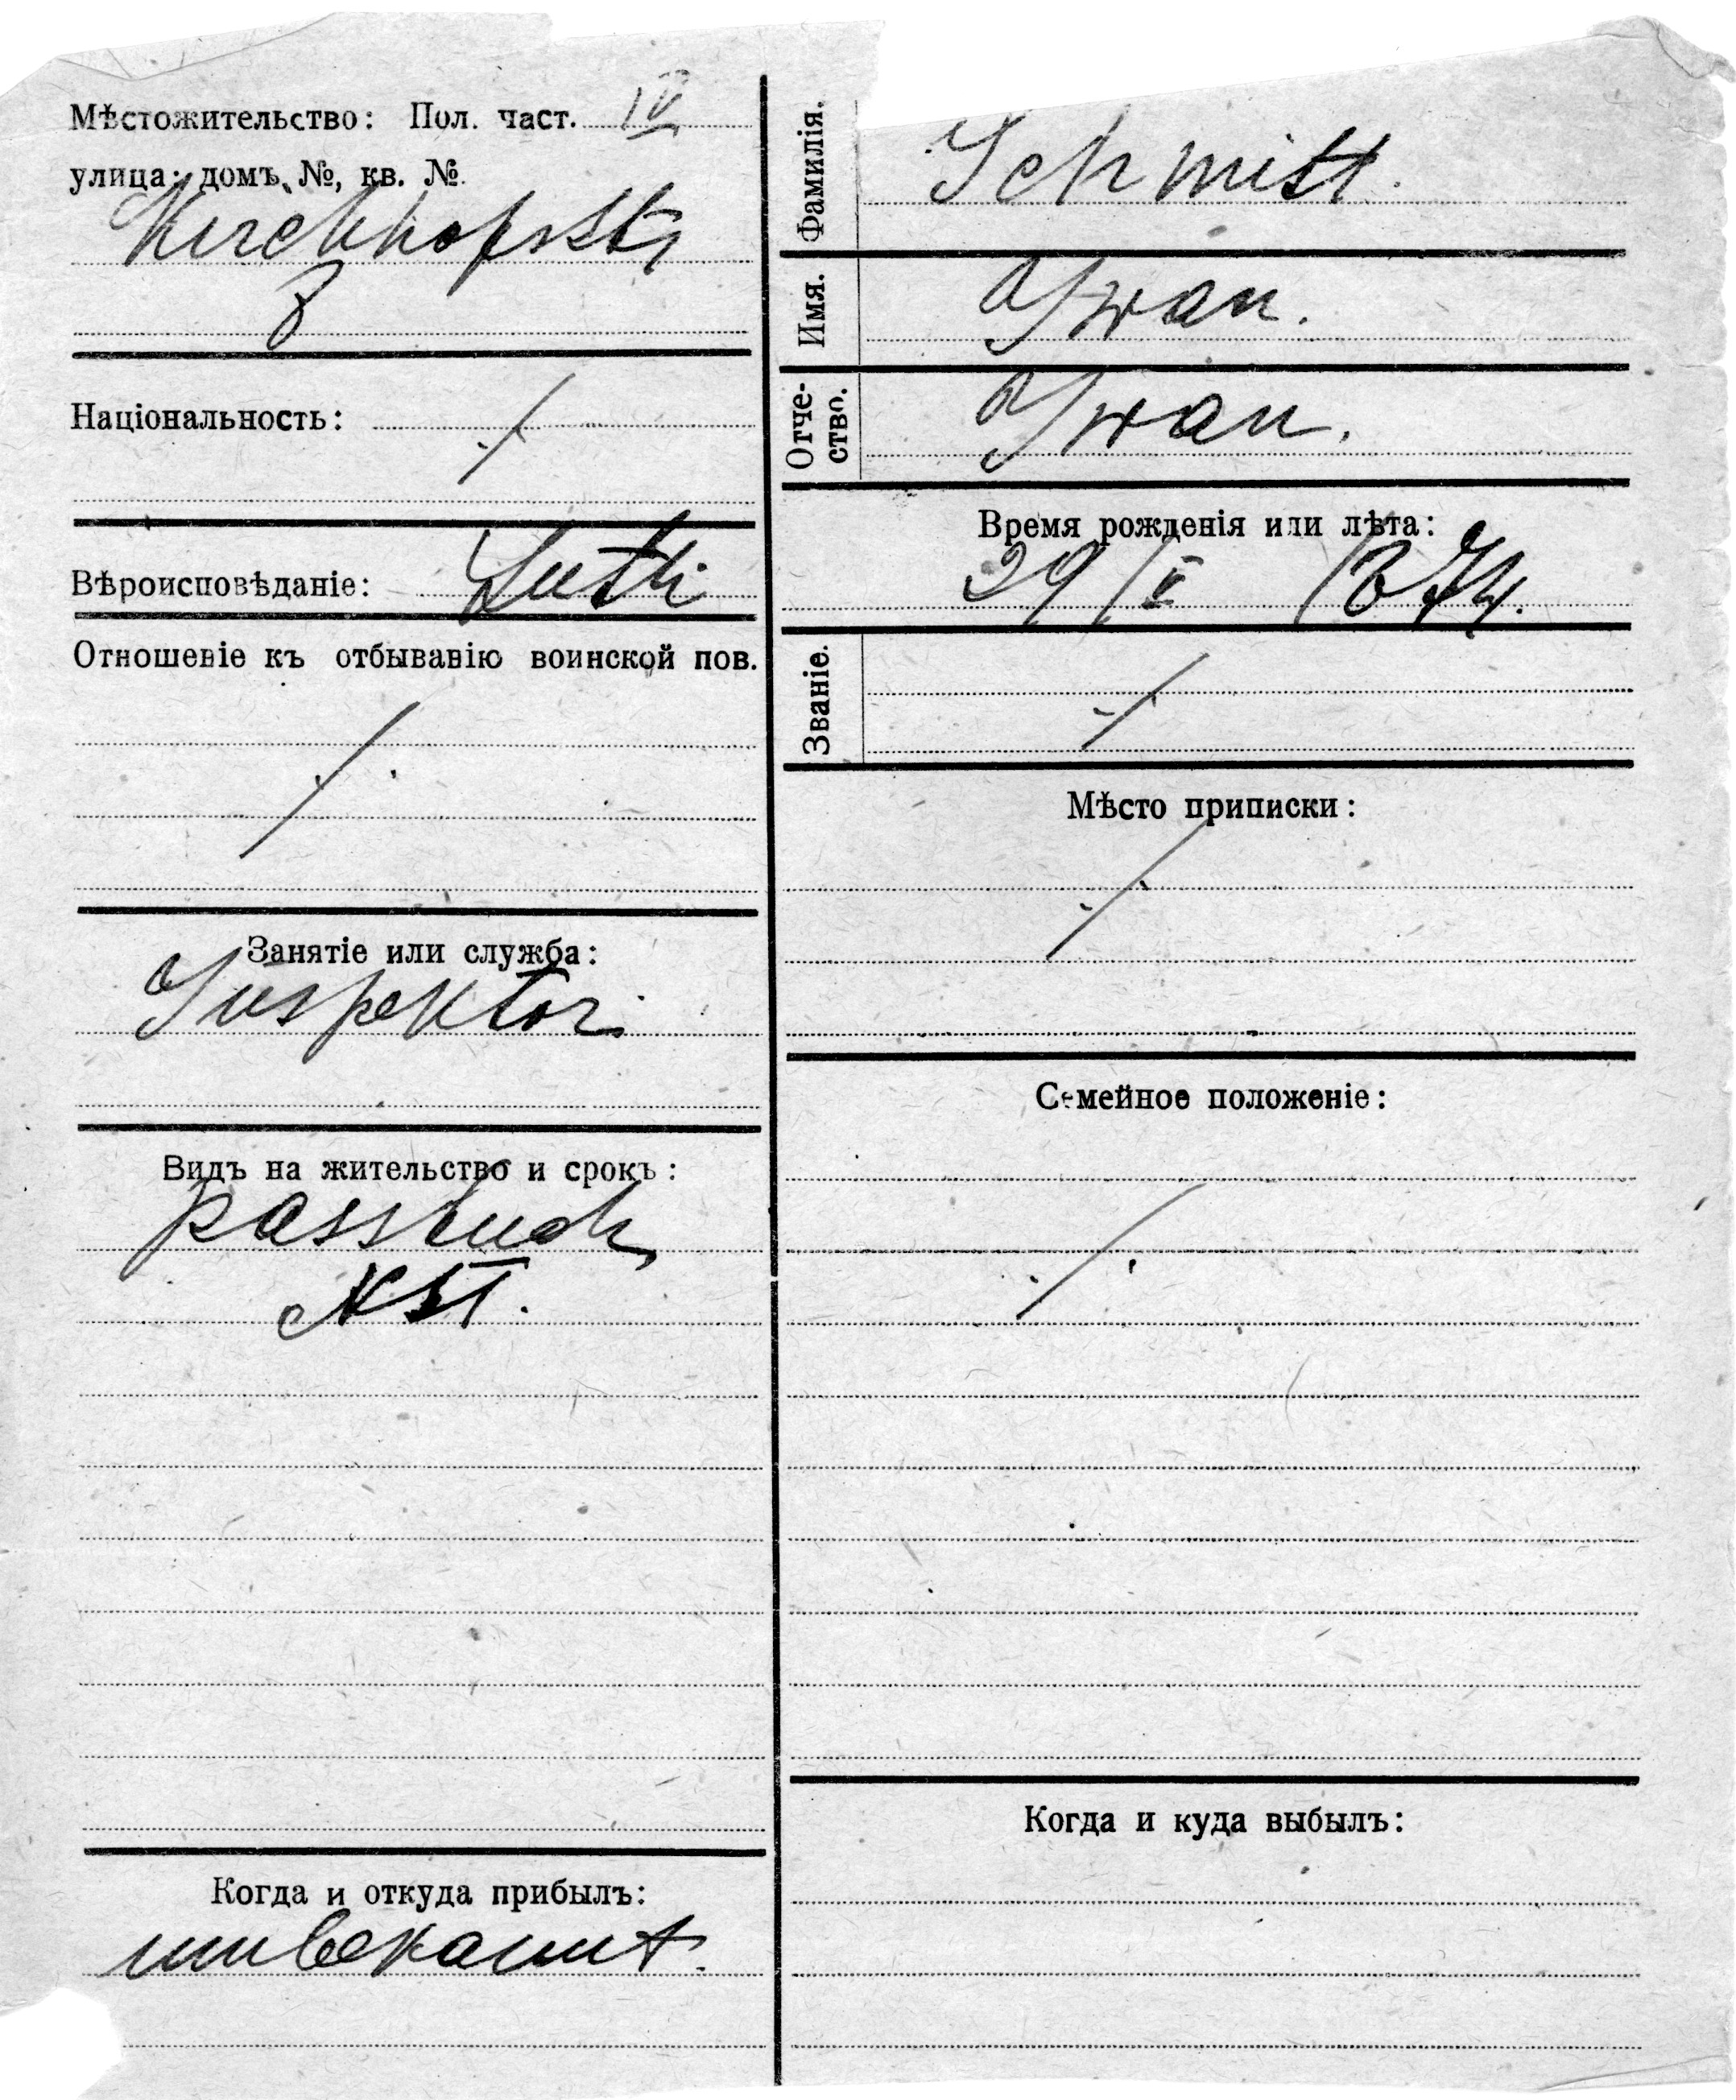 Мѣстожительство: Пол. част. IV
улица; домъ, №, кв. №.
Kirchhofstr,
8
Національность: ./.
Вѣроисповѣданіе: Luth.
Отношеніе къ отбыванію воинской пов.
./.
Занятіе или служба:
Inspektor.
Видъ на жительство и срокъ:
Passbuch
Когда и откуда прибылъ:
unbekannt.
Фамилія. Schmitt.
Имя. Iwan.
Отче-
ство. Iwan.
Время рожденія или лѣта:
29/V 1874.
Званіе. ./.
Мѣсто приписки:
./.
Семейное положеніе:
./.
Когда и куда выбылъ: